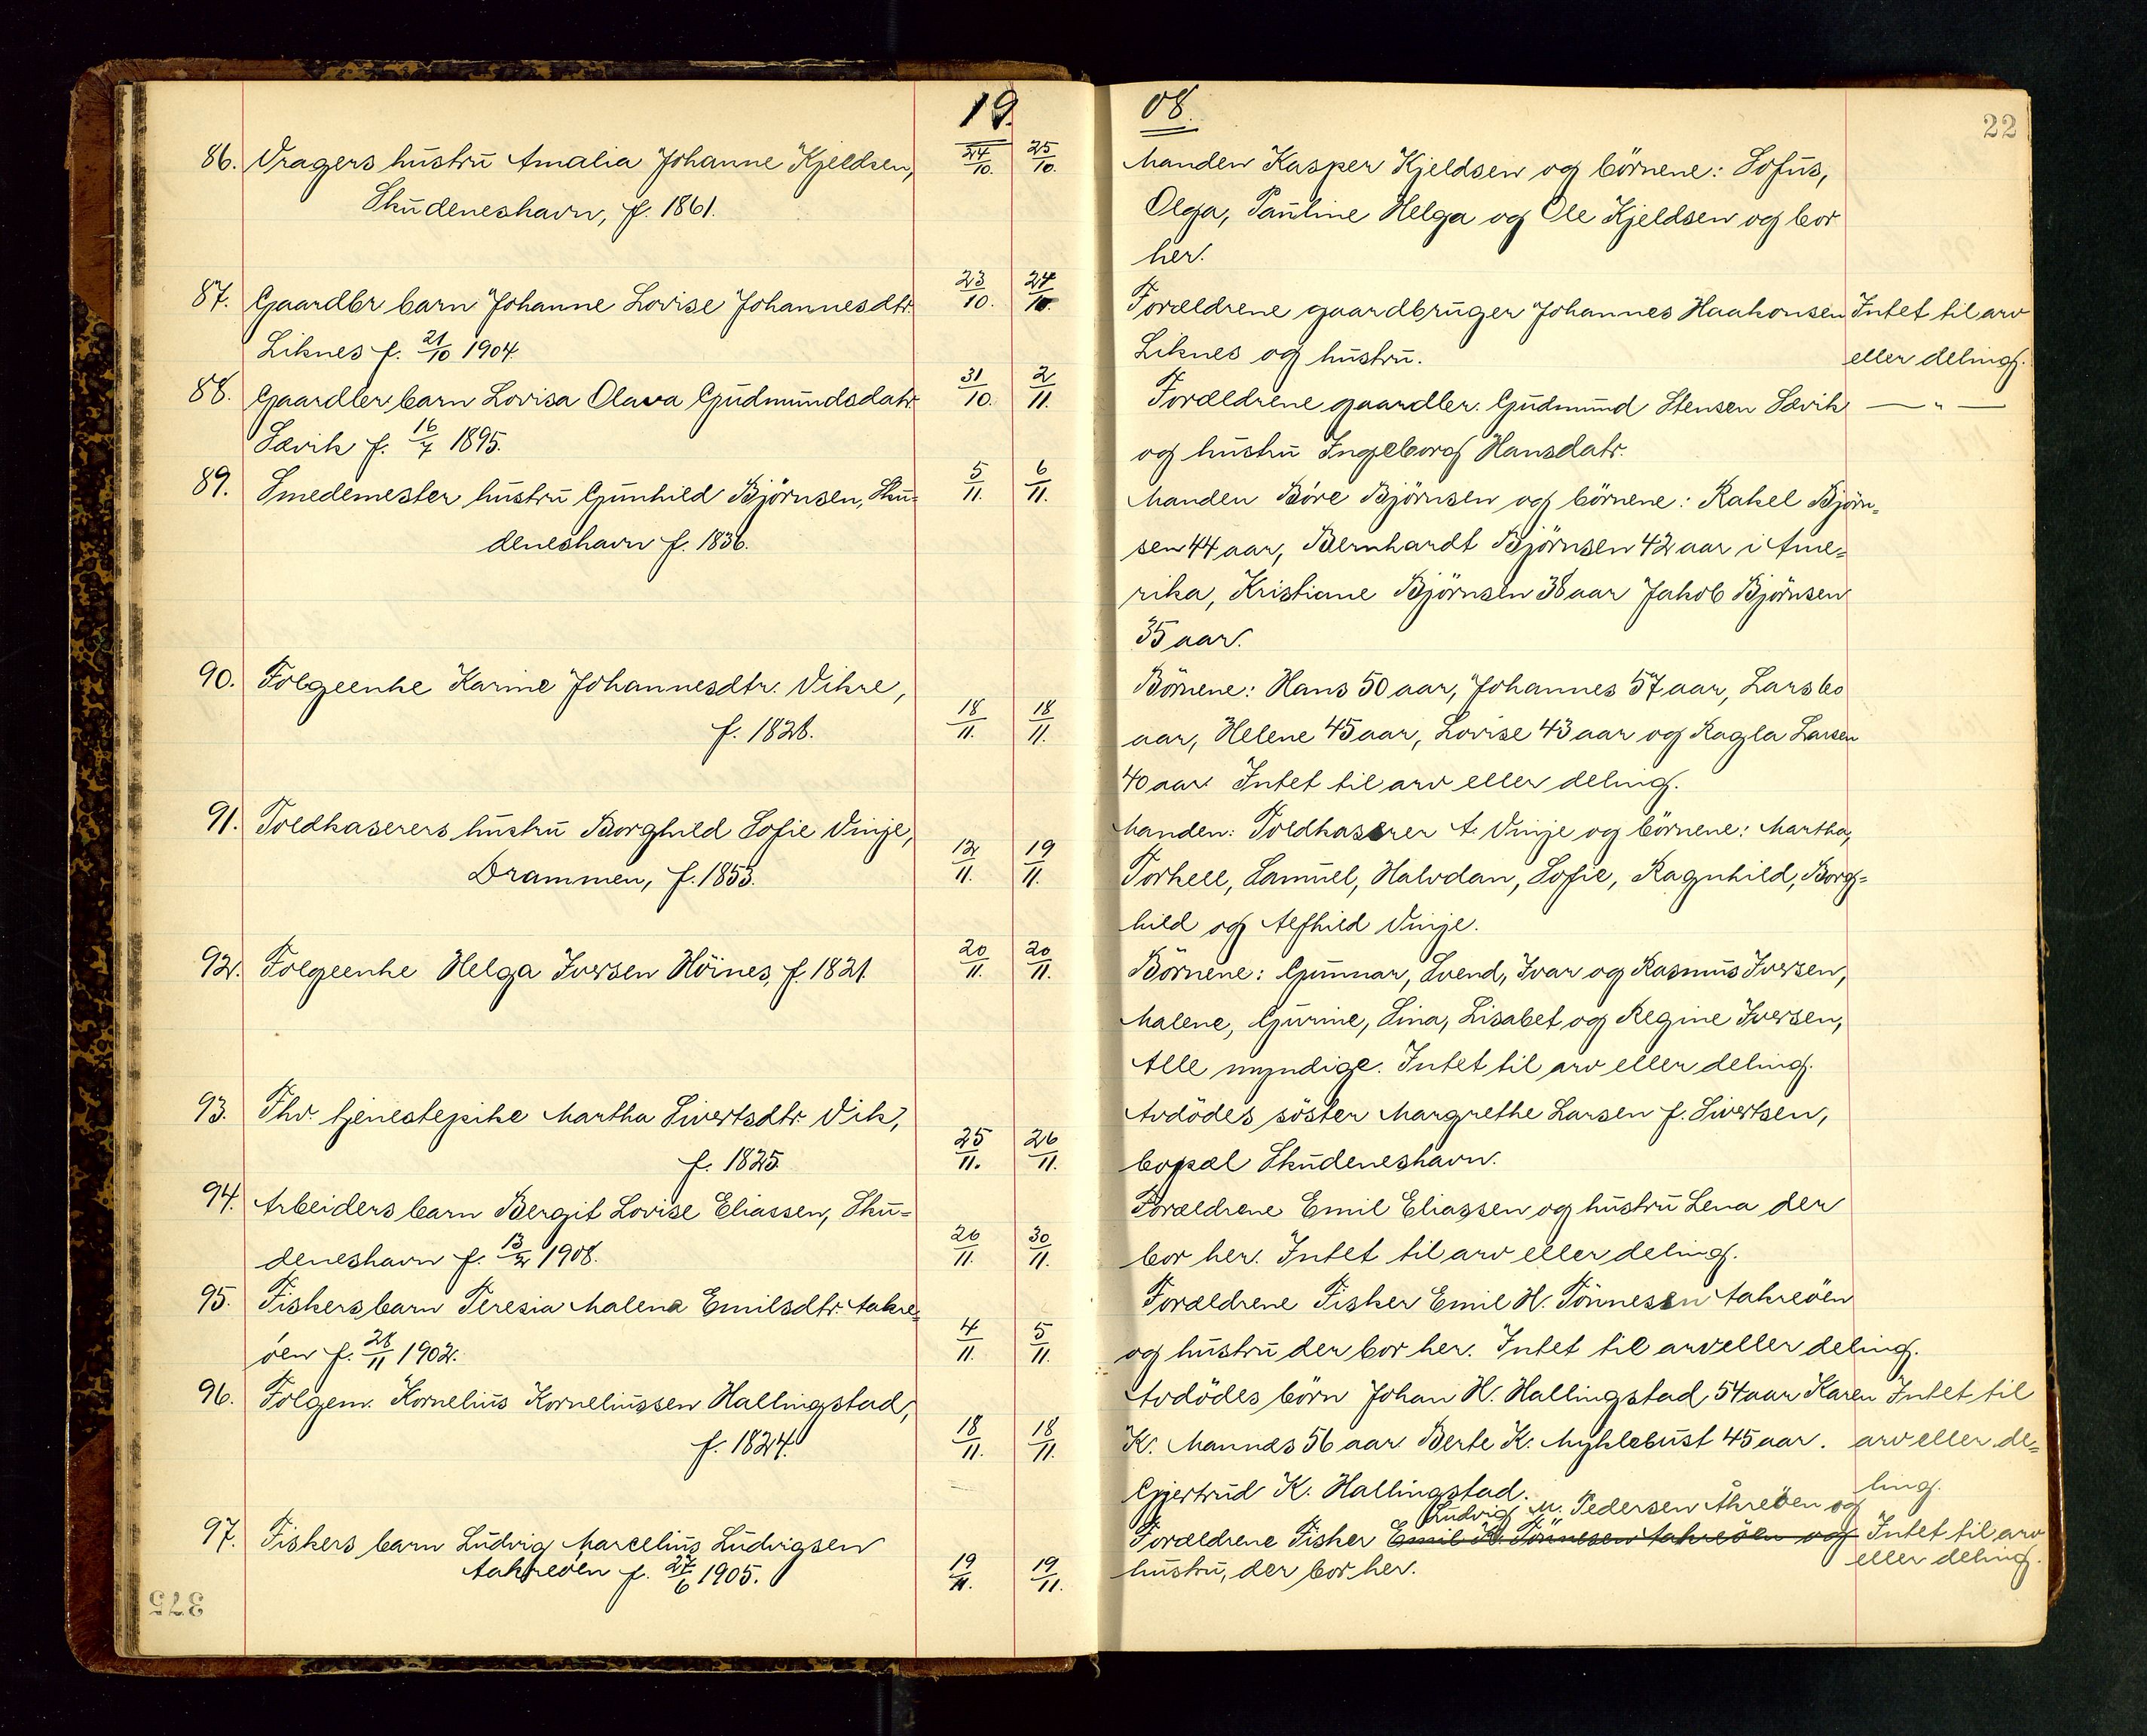 19 08.
22
86. Vragers hustru Amalia Johanne Kjeldsen, 24/10. 25/10. Manden Kasper Kjeldsen og börnene: Sofus,
Skudeneshavn, f. 1861. Olga, Pauline Helga og Ole Kjeldsen og bor
her.
87. Gaardbr barn Johanne Lovise Johannesdtr. 23/10. 24/10. Forældrene gaardbruger Johannes Haakonsen Intet til arv
Liknes f. 21/10 1904. Liknes og hustru. eller deling.
88. Gaardbr barn Lovisa Olava Gudmundsdatr. 31/10. 2/11. Forældrene gaardbr. Gudmund Stensen Sævik — " —
Sævik f. 16/7 1895. og hustru Ingeborg Hansdatr.
89. Smedemester hustru Gunhild Björnsen, Sku= 5/11. 6/11. Manden Böre Björnsen og börnene: Rakel Björn=
deneshavn f. 1836. sen 44 aar, Bernhardt Björnsen 42 aar i Ame=
rika, Kristiane Björnsen 38 aar Jakob Björnsen
35 aar.
90. Folgeenke Karine Johannesdtr. Vikre, Börnene: Hans 50 aar, Johannes 57 aar, Lars 60
f. 1828. 18/11. 18/11. aar, Helene 45 aar, Lovise 43 aar og Ragla Larsen
40 aar. Intet til arv eller deling.
91. Toldkaserers hustru Borghild Sofie Vinje, Manden: Toldkaserer A. Vinje og börnene: Martha,
Drammen, f. 1853. 12/11. 19/11. Torkell, Samuel, Halvdan, Sofie, Ragnhild, Borg=
hild og Alfhild Vinje.
92. Folgeenke Helga Iversen Höines, f. 1821. 20/11. 20/11. Börnene: Gunnar, Svend, Ivar og Rasmus Iversen,
Malene, Gurine, Sina, Lisabet og Regine Iversen,
Alle myndige. Intet til arv eller deling.
93. Fhv. tjenestepike Martha Sivertsdtr. Vik, Avdödes söster Margrethe Larsen f. Sivertsen,
f. 1825. 25/11. 26/11. bopæl Skudeneshavn.
94. Arbeiders barn Bergit Lovise Eliassen, Sku= Forældrene Emil Eliassen og hustru Lena der
deneshavn f. 13/2 1908. 26/11. 30/11. bor her. Intet til arv eller deling.
95. Fiskers barn Teresia Malena Emilsdtr. Aakre= Forældrene Fisker Emil H. Tönnesen Aakreöen
öen f. 28/11 1902. 4/11. 5/11. og hustru der bor her. Intet til arv eller deling.
96. Folgem. Kornelius Korneliussen Hallingstad, Avdödes börn Johan H. Hallingstad 54 aar Karen Intet til
f. 1824. 18/11. 18/11. K. Mannes 56 aar Berte K. Myklebust 45 aar. arv eller de=
Gjertrud K. Hallingstad. ling.
Ludvig M. Pedersen Åkreöen og
97. Fiskers barn Ludvig Marcelius Ludvigsen Forældrene Fisker Emil H. Tönnesen Aakreöen og Intet til arv
Aakreöen f. 27/6 1905. 19/11. 19/11. hustru, der bor her. eller deling.
375